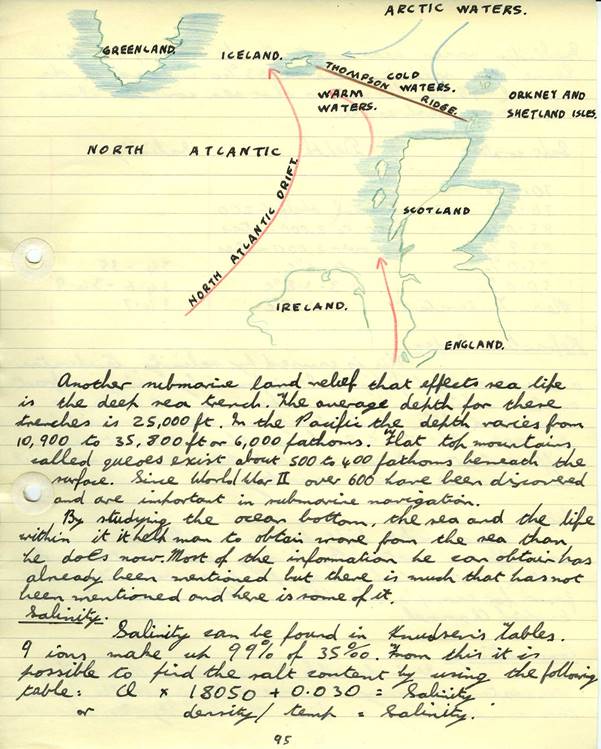 ARCTIC WATERS.
GREENLAND.
ICELAND.
THOMPSON RIDGE.
COLD WATERS.
WARM WATERS.
ORKNEY AND
SHETLAND ISLES.
NORTH ATLANTIC
NORTH ATLANTIC DRIFT.
SCOTLAND
IRELAND.
ENGLAND.
Another submarine land relief that effects sea life
is the deep sea trench. The average depth for these
trenches is 25,000 ft. In the Pacific the depth varies from
10,900 to 35,800 ft or 6,000 fathoms. Flat top mountains
called queoes exist about 500 to 400 fathoms beneath the
surface. Since World War II over 600 have been discovered
and are important in submarine navigation.
By studying the ocean bottom, the sea and the life
within it it help man to obtain more from the sea than
he does now. Most of the information he can obtain has
already been mentioned but there is much that has not
been mentioned and here is some of it.
Salinity.
Salinity can be found in Knudsen's Tables.
9 ions make up 99% of 35‰. From this it is
possible to find the salt content by using the following
table: Cl × 18050 + 0.030 = Salinity
or density / temp = Salinity.
95